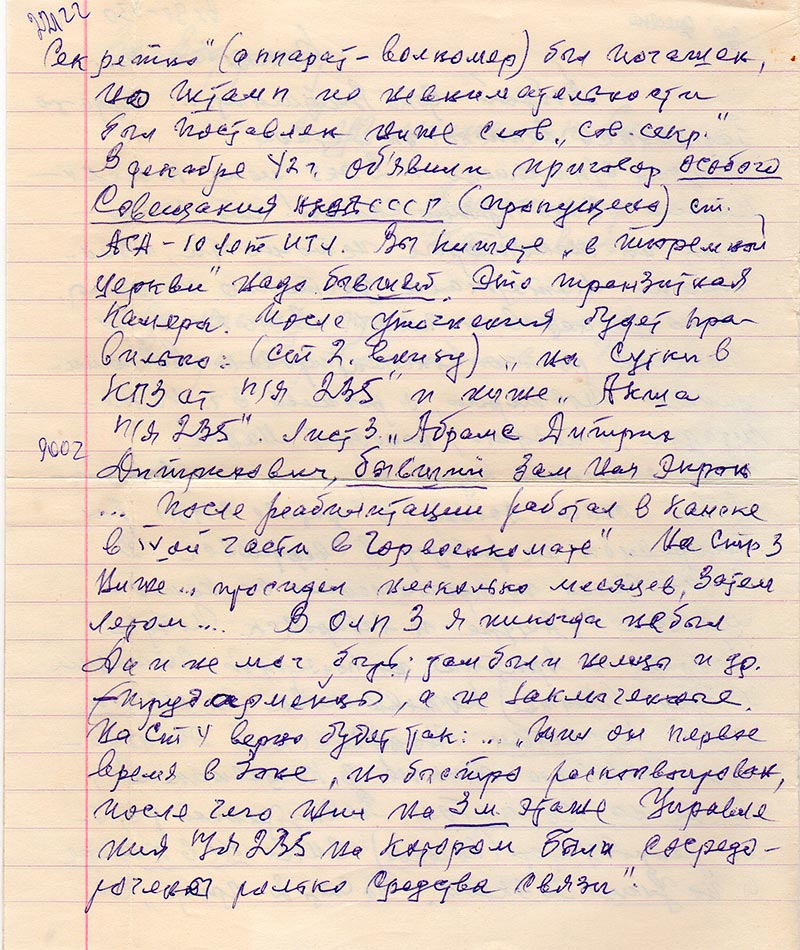 Секретно" (аппарат - волномер) был погашен,
но штамп по невнимательности
был поставлен ниже слов „сов. секр."
В декабре 42 г. объявили приговор особого
Совещания НКВД СССР (пропущено) ст.
АСА - 10 лет ИТЛ. Вы пишете „в тюремной
церкви" надо бывшей. Это транзитная
камера. После уточнения будет пра-
вильно: (стр 2. внизу) „на сутки в
КПЗ от п/я 235" и ниже „Акша
п/я 235". Лист 3. „Абрамс Дитрих
Дитрихович, бывший зам нач
... После реабилитации работал в Канске
в IVой части в Горвоенкомате". На стр 3
ниже... просидел несколько месяцев, затем
летом... В Олп 3 я никогда не был
да и не мог быть; там были немцы и др.
трудоармейцы, а не заключенные.
На ст 4 верно будет так: ... „жил он первое
время в зоне, но быстро расконвоирован,
после чего жил на 3м этаже Управле
ния п/я 235 на котором были сосредо-
точены только средства связи".